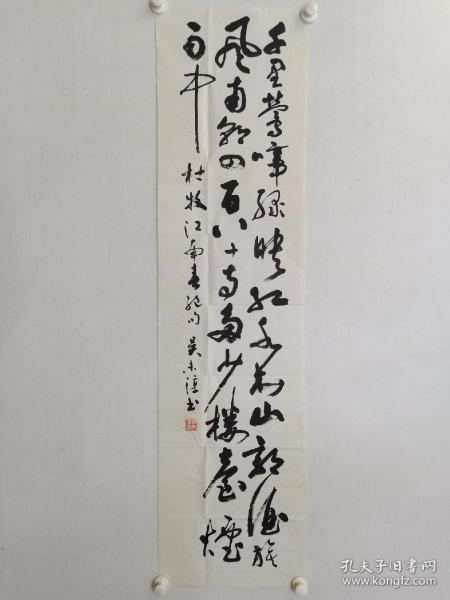 千里莺啼绿映红水村山郭酒旗
风南朝四百八十寺多少楼臺烟
雨中
杜牧江南春绝句 吴未淳书
孔夫子旧书网